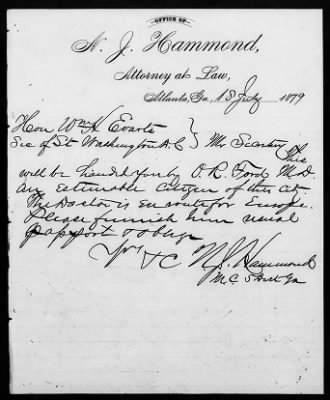 OFFICE OF
N. J. Hammond,
Attorney at Law,
Atlanta, Ga, 18 July 1879
Hon Wm H. Evarts
Sec of St Washington D.C } Mr Secretary This
will be handed you by O. R. Ford M.D.
an estimable citizen of this city
The Doctor is en route for Europe.
Please furnish him usual
passport & oblige
Yrs &C N J Hammond
M.C 5 Dist Ga